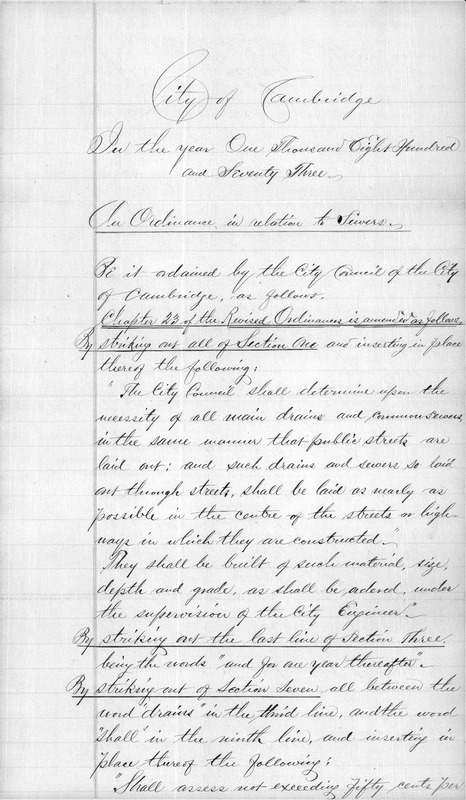 City of Cambridge
In the year One Thousand Eight Hundred
and Seventy Three.
An Ordinance, in relation to Sewers.
Be it ordained by the City Council of the City
of Cambridge, as follows.
Chapter 23 of the Revised Ordinances is amended as follows.
By striking out all of Section One and inserting in place
thereof the following:
"The City Council shall determine upon the
necessity of all main drains and common sewers,
in the same manner that public streets are
laid out; and such drains and sewers so laid
out through streets, shall be laid as nearly as
possible in the centre of the streets or high-
ways in which they are constructed."
They shall be built of such material, size,
depth and grade, as shall be ordered, under
the supervision of the City Engineer".
By striking out the last line of Section Three,
being the words "and for one year thereafter".
By striking out of Section Seven, all between the
word "drains" in the third line, and the word
"shall" in the ninth line, and inserting in
place thereof the following:
"Shall assess not exceeding fifty cents per